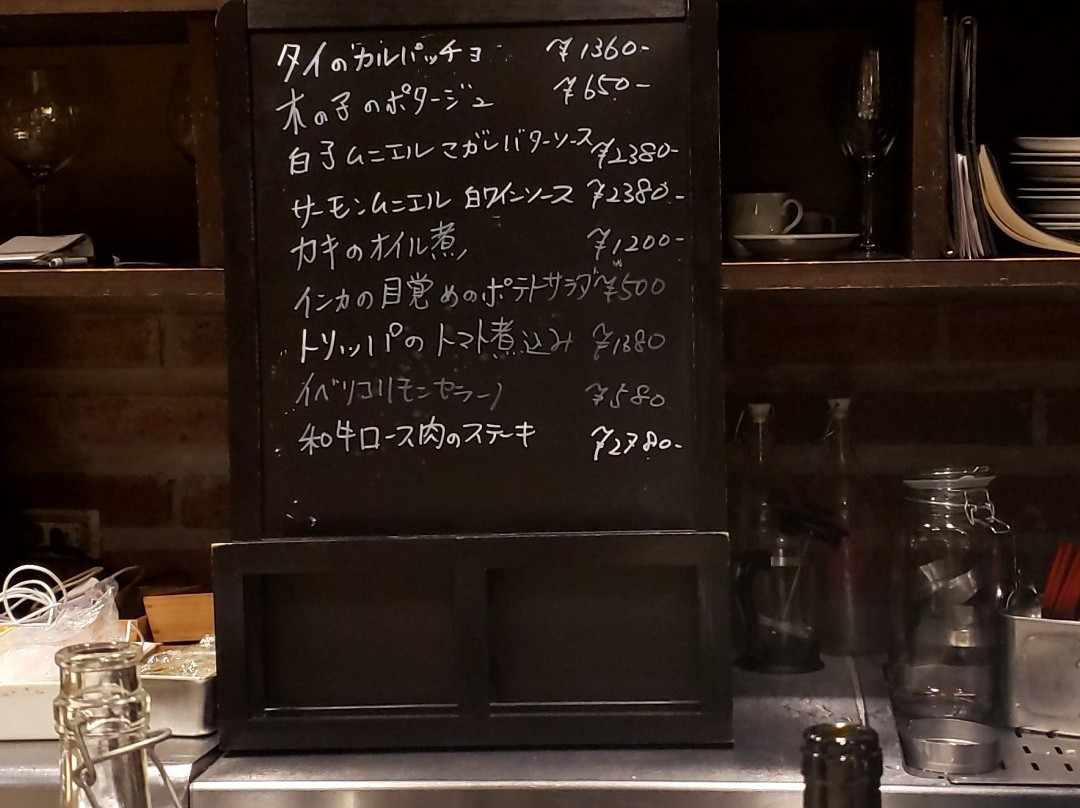 タイのカルパッチョ ¥1360-
木の子のポタージュ ¥650-
白子ムニエル こがしバターソース ¥2380-
サーモンムニエル 白ワインソース ¥2380-
カキのオイル煮 ¥1200-
インカの目覚めのポテトサラダ ¥500
トリッパのトマト煮込み ¥1380
イベリコリモンセラーノ ¥580
和牛ロース肉のステーキ ¥2780-